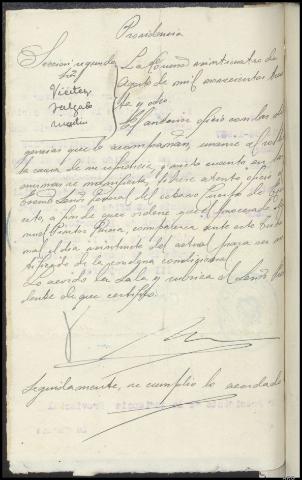 Providencia
Seccion segunda
Sres
Vieitez
Salgado
Martin
La Coruña veinticuatro de
Agosto de mil novecientos trein
ta y ocho
El anterior oficio con las dili
gencias que lo acompañan, unanse al rollo
de la causa de su referencia, y visto cuanto en las
mismas se manifiesta, librese atento oficio al
Excmo Señor General del octavo Cuerpo de Ejer
cito, a fin de que ordene que el procesado Ma
nuel comparezca ante este Tribu
nal el dia veintisiete del actual para ser no
tificado de la condena condicional
Lo acordó la Sala y rubrica el Señor Presi
dente de que certifico.
Seguidamente, se cumplio lo acordado